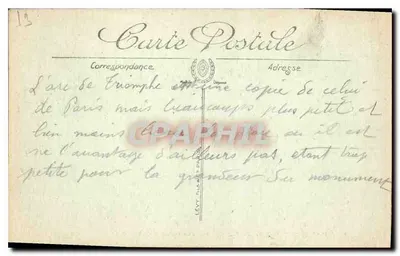 13
Carte Postale
Correspondance Adresse
L'arc de Triomphe est une copie de celui
de Paris mais beaucoup plus petit et
bien moins place où il est
ne l'avantage d'ailleurs pas, étant trop
petite pour la grandeur du monument
CPARAMA